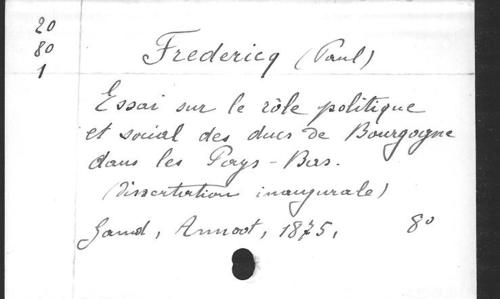 20
80
1
Fredericq (Paul)
Essai sur le rôle politique
et social des ducs de Bourgogne
dans les Pays-Bas.
(Dissertation inaugurale)
Gand, Annoot, 1875, 8o